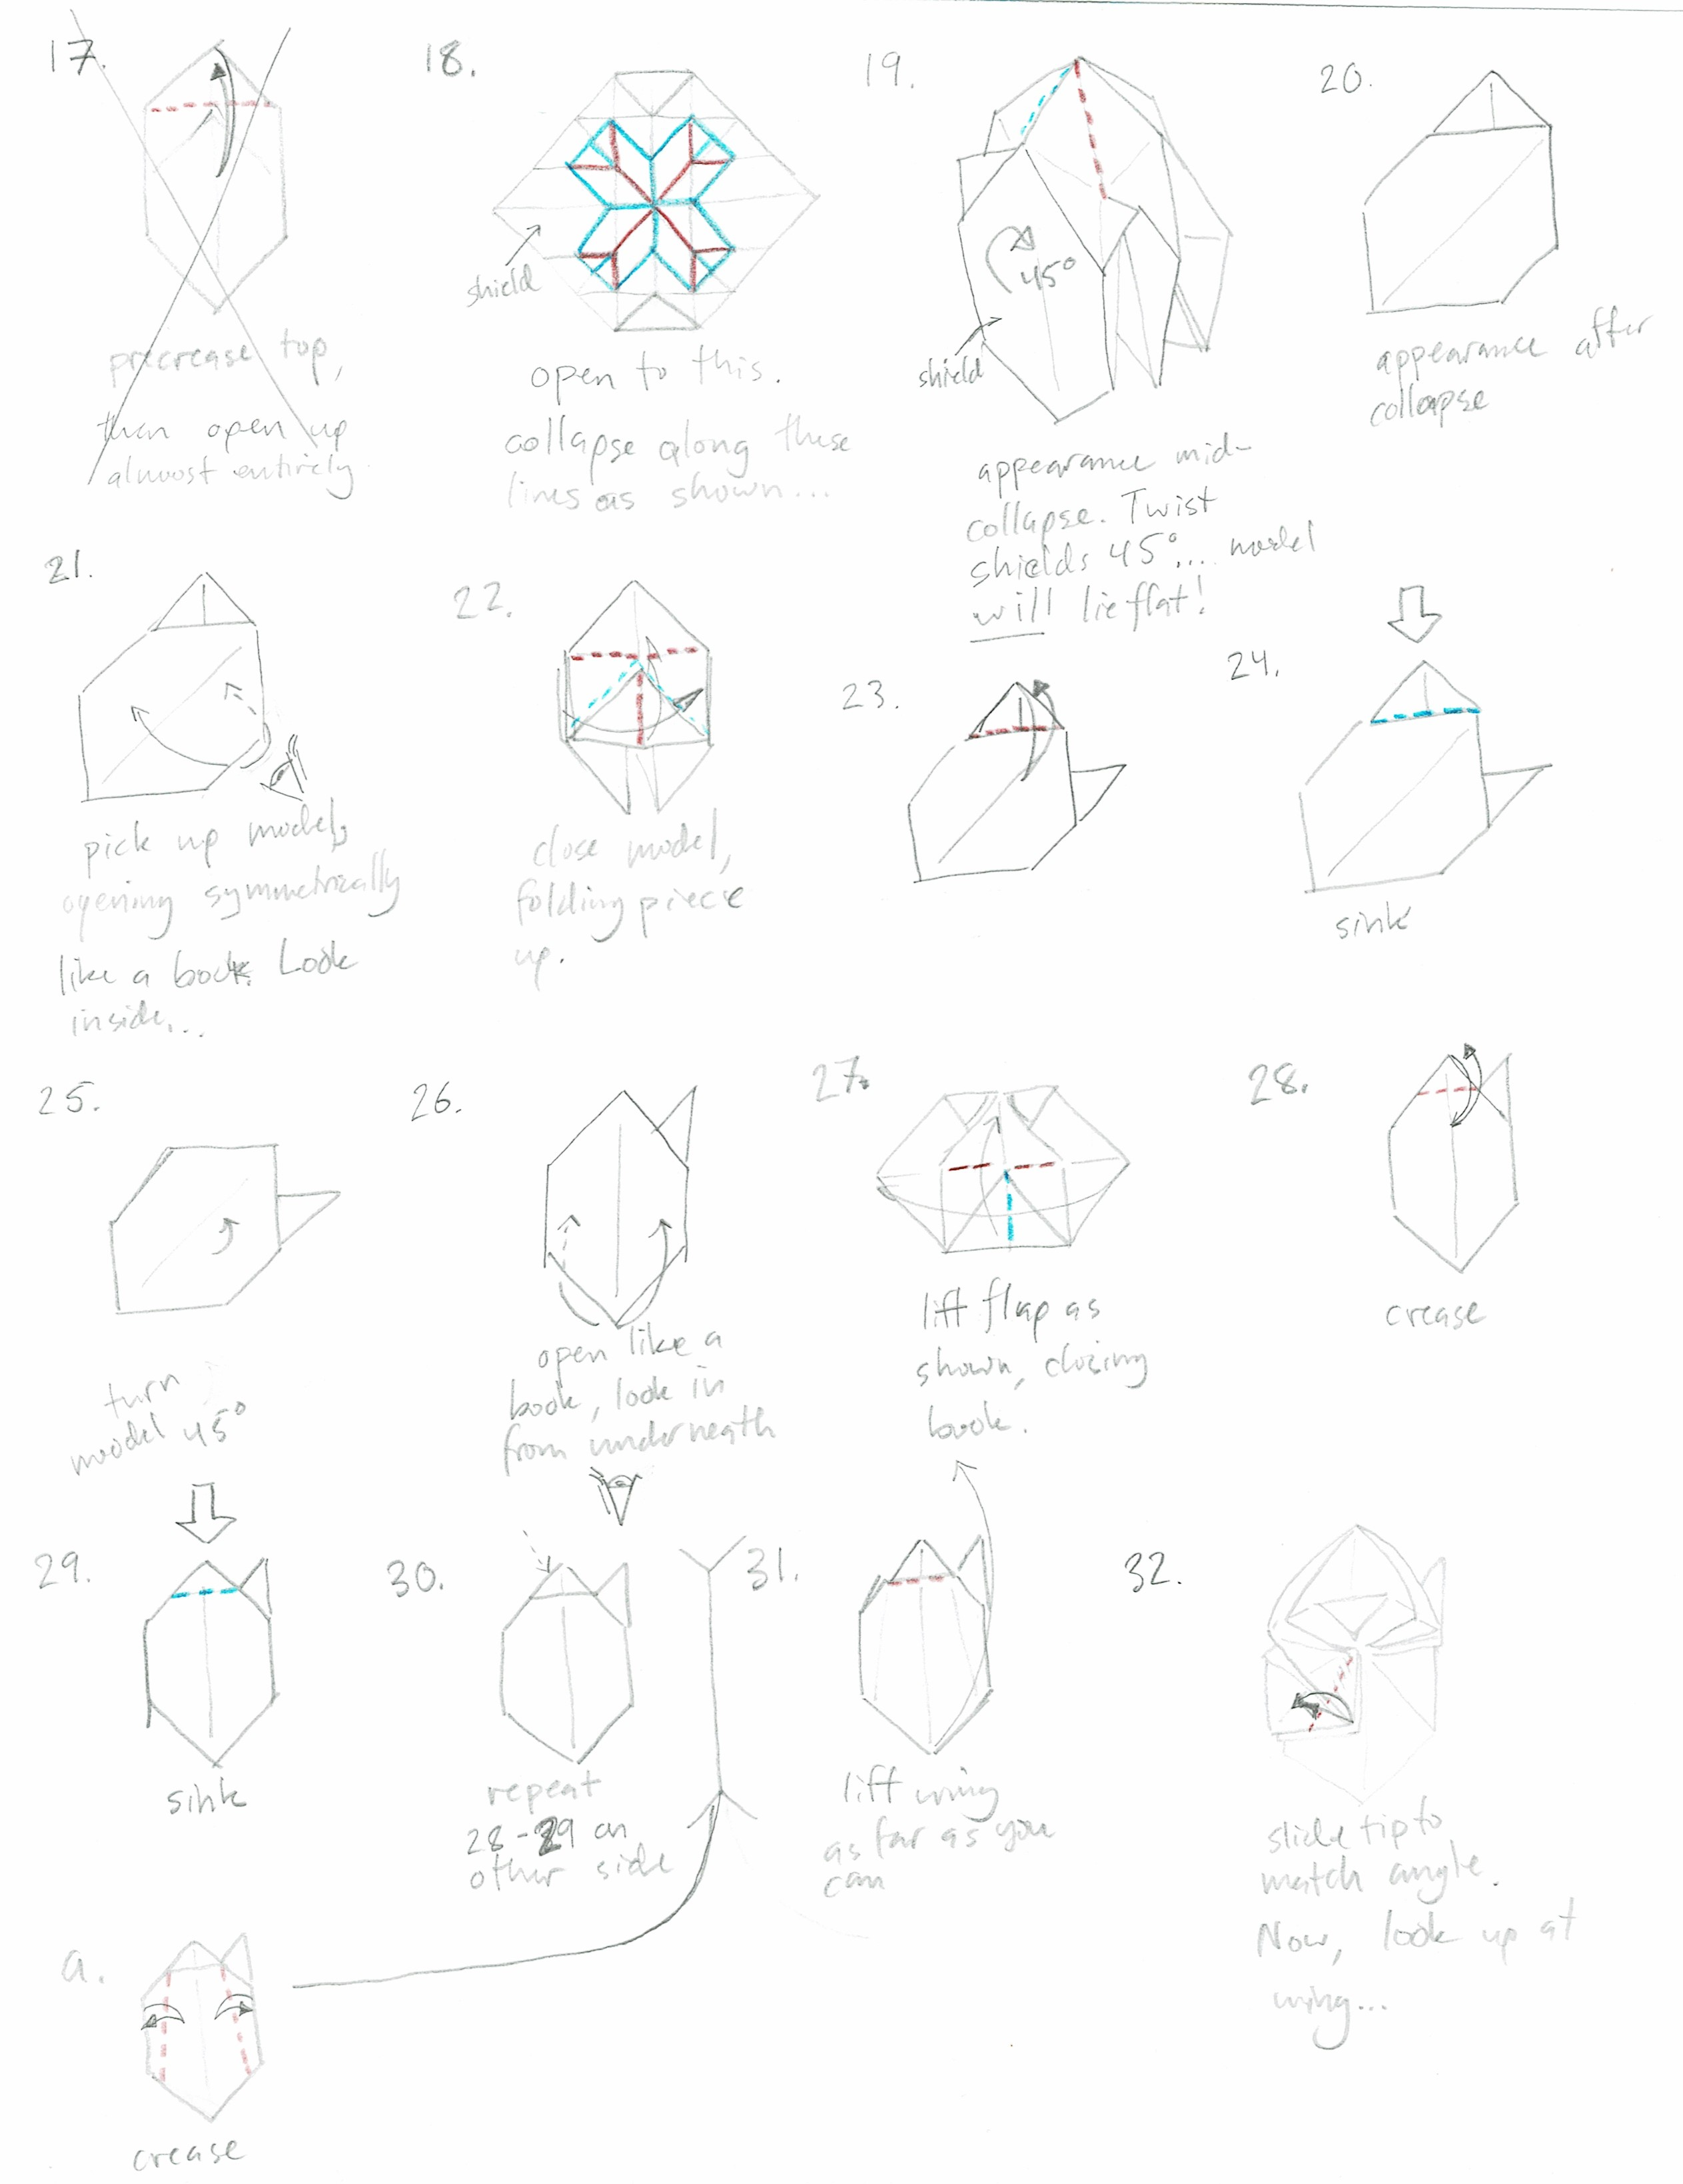 17.
precrease top,
then open up
almost entirely
18.
shield
open to this.
collapse along these
lines as shown...
19.
45°
shield
appearance mid-
collapse. Twist
shields 45°... model
will lie flat!
20.
appearance after
collapse
21.
pick up model,
opening symmetrically
like a book. Look
inside...
22.
close model,
folding piece
up.
23.
24.
sink
25.
turn
model 45°
26.
open like a
book, look in
from underneath
27.
lift flap as
shown, closing
book.
28.
crease
29.
sink
30.
repeat
28-29 on
other side
31.
lift wing
as far as you
can
32.
slide tip to
match angle.
Now, look up at
wing...
a.
crease